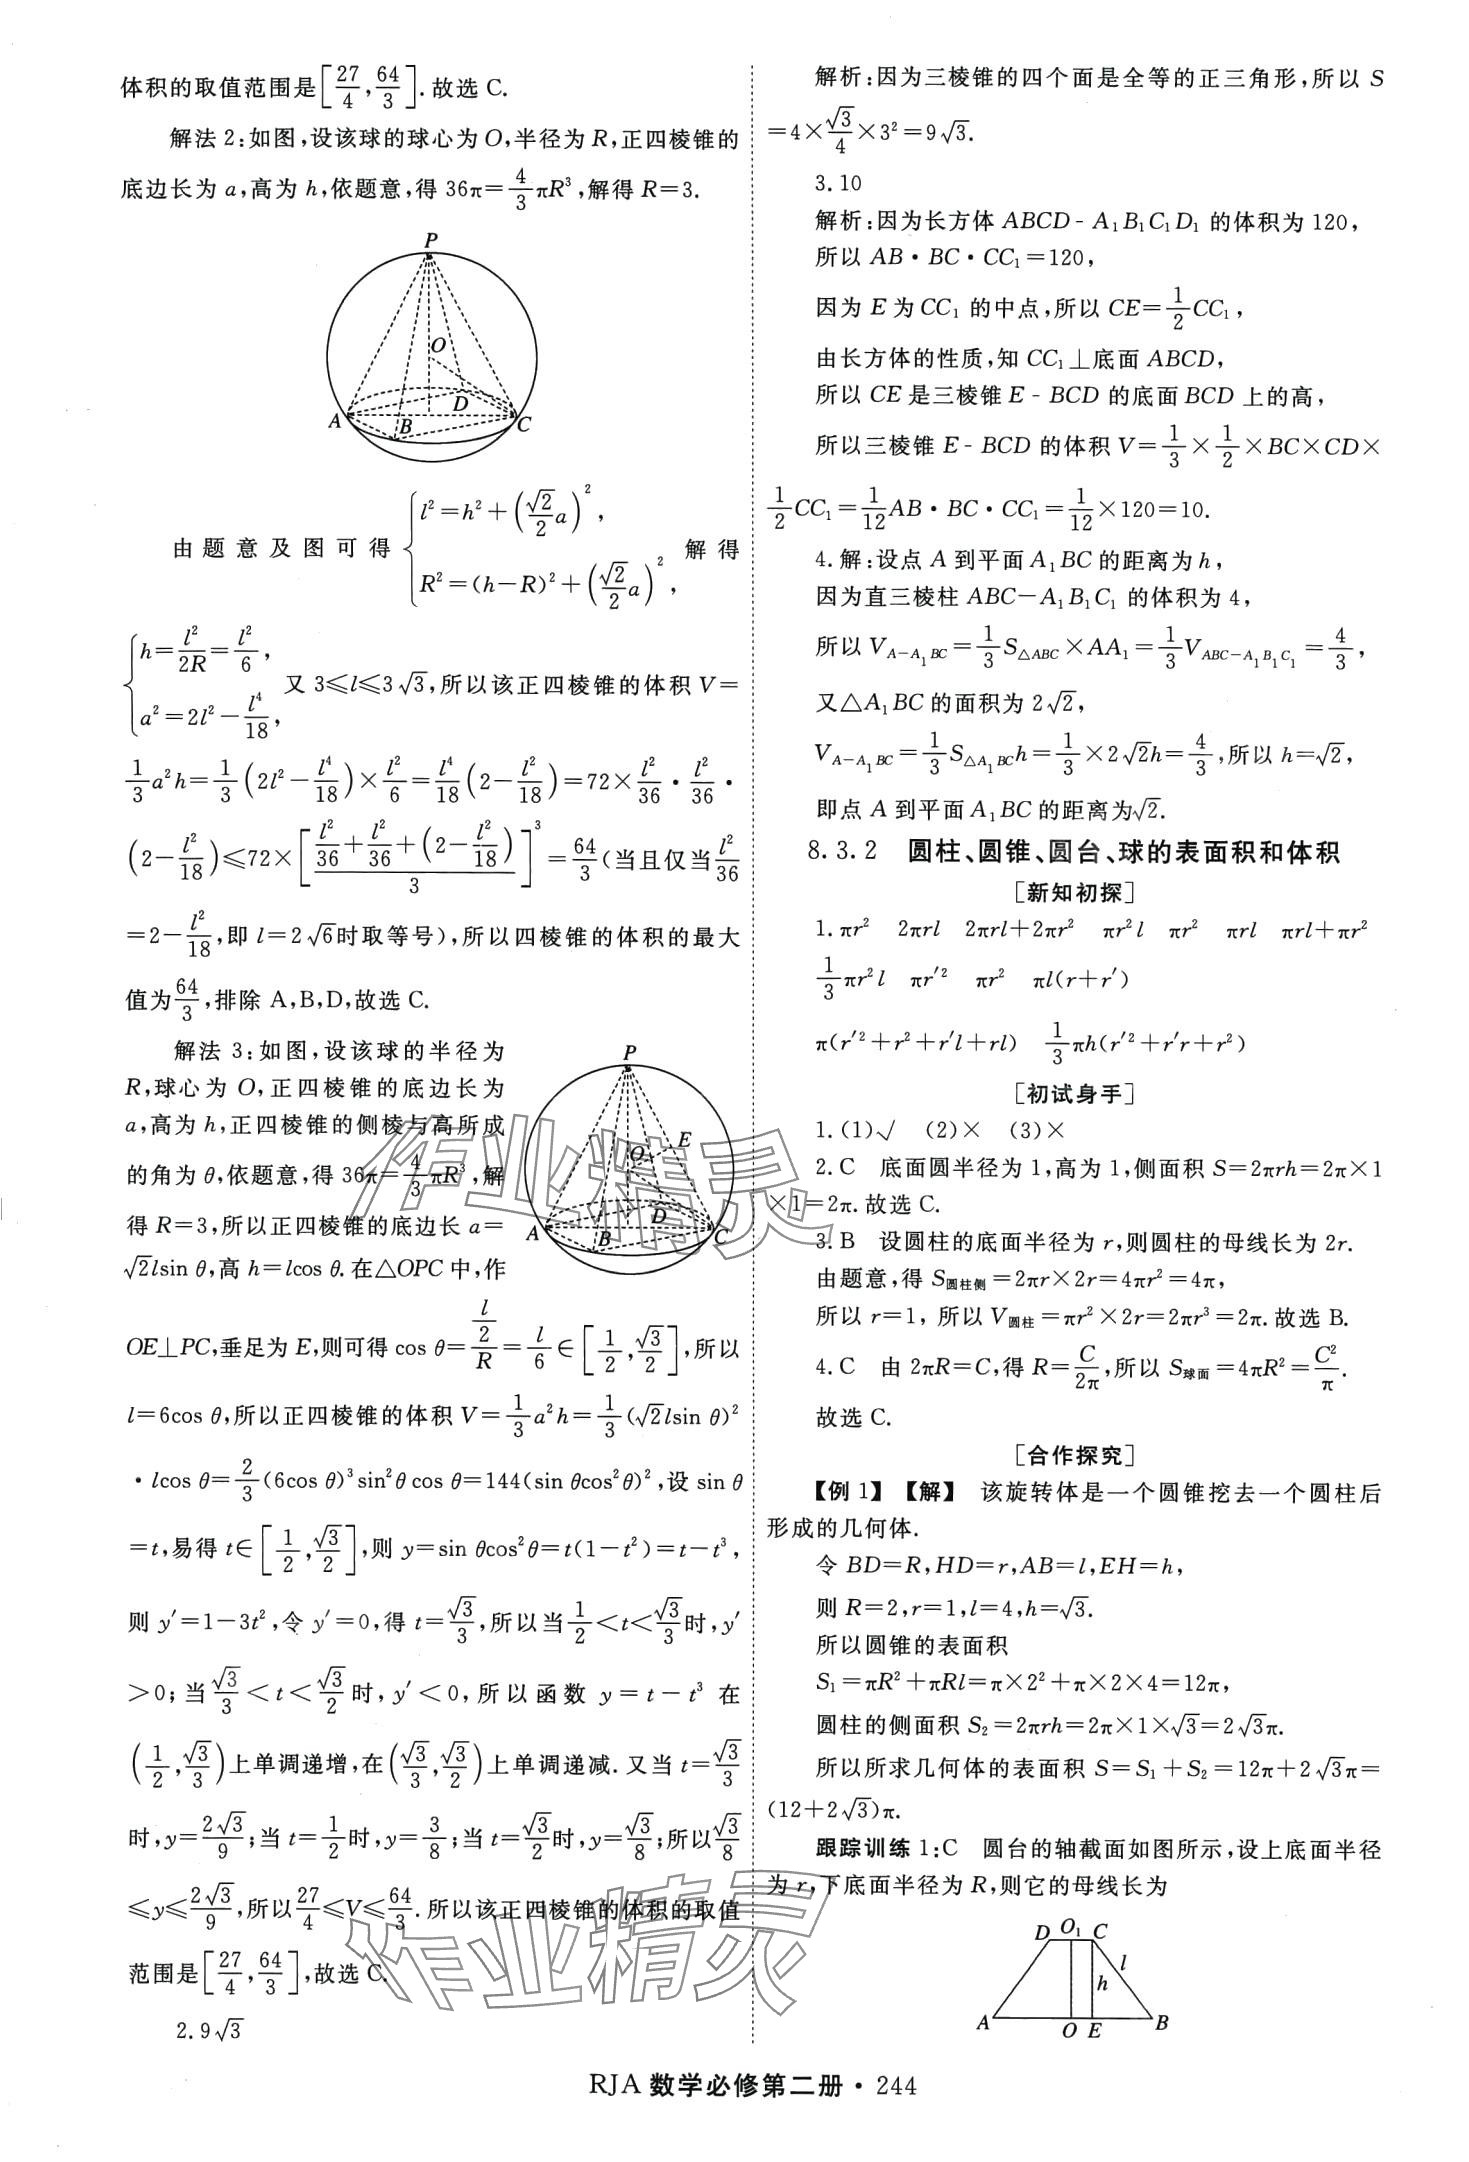 体积的取值范围是[27/4,64/3].故选 C.
解法 2:如图,设该球的球心为 O,半径为 R,正四棱锥的
底边长为 a,高为 h,依题意,得 36π=4/3πR³,解得 R=3.
P
O
A B D C
由题意及图可得{l²=h²+(√2/2a)², R²=(h-R)²+(√2/2a)², 解得
{h=l²/2R=l²/6, a²=2l²-l⁴/18, 又 3≤l≤3√3,所以该正四棱锥的体积 V=
1/3a²h=1/3(2l²-l⁴/18)×l²/6=l⁴/18(2-l²/18)=72×l²/36·l²/36·
(2-l²/18)≤72×[(l²/36+l²/36+(2-l²/18))/3]³=64/3(当且仅当l²/36
=2-l²/18,即 l=2√6时取等号),所以四棱锥的体积的最大
值为64/3,排除 A,B,D,故选 C.
解法 3:如图,设该球的半径为
R,球心为 O,正四棱锥的底边长为
a,高为 h,正四棱锥的侧棱与高所成
的角为 θ,依题意,得 36π=4/3πR³,解
得 R=3,所以正四棱锥的底边长 a=
√2lsin θ,高 h=lcos θ.在△OPC 中,作
P
E
O
A B D C
OE⊥PC,垂足为 E,则可得 cos θ=(l/2)/R=l/6∈[1/2,√3/2],所以
l=6cos θ,所以正四棱锥的体积 V=1/3a²h=1/3(√2lsin θ)²
·lcos θ=2/3(6cos θ)³sin²θ cos θ=144(sin θcos²θ)²,设 sin θ
=t,易得 t∈[1/2,√3/2],则 y=sin θcos²θ=t(1-t²)=t-t³,
则 y′=1-3t²,令 y′=0,得 t=√3/3,所以当1/2<t<√3/3时,y′
>0;当√3/3<t<√3/2时,y′<0,所以函数 y=t-t³ 在
(1/2,√3/3)上单调递增,在(√3/3,√3/2)上单调递减.又当 t=√3/3
时,y=2√3/9;当 t=1/2时,y=3/8;当 t=√3/2时,y=√3/8;所以√3/8
≤y≤2√3/9,所以27/4≤V≤64/3.所以该正四棱锥的体积的取值
范围是[27/4,64/3],故选 C.
2.9√3
解析:因为三棱锥的四个面是全等的正三角形,所以 S
=4×√3/4×3²=9√3.
3.10
解析:因为长方体 ABCD-A₁B₁C₁D₁ 的体积为 120,
所以 AB·BC·CC₁=120,
因为 E 为 CC₁ 的中点,所以 CE=1/2CC₁,
由长方体的性质,知 CC₁⊥底面 ABCD,
所以 CE 是三棱锥 E-BCD 的底面 BCD 上的高,
所以三棱锥 E-BCD 的体积 V=1/3×1/2×BC×CD×
1/2CC₁=1/12AB·BC·CC₁=1/12×120=10.
4.解:设点 A 到平面 A₁BC 的距离为 h,
因为直三棱柱 ABC-A₁B₁C₁ 的体积为 4,
所以 V_{A-A₁BC}=1/3S_{△ABC}×AA₁=1/3V_{ABC-A₁B₁C₁}=4/3,
又△A₁BC 的面积为 2√2,
V_{A-A₁BC}=1/3S_{△A₁BC}h=1/3×2√2h=4/3,所以 h=√2,
即点 A 到平面 A₁BC 的距离为√2.
8.3.2 圆柱、圆锥、圆台、球的表面积和体积
[新知初探]
1.πr² 2πrl 2πrl+2πr² πr²l πr² πrl πrl+πr²
1/3πr²l πr′² πr² πl(r+r′)
π(r′²+r²+r′l+rl) 1/3πh(r′²+r′r+r²)
[初试身手]
1.(1)√ (2)× (3)×
2.C 底面圆半径为 1,高为 1,侧面积 S=2πrh=2π×1
×1=2π.故选 C.
3.B 设圆柱的底面半径为 r,则圆柱的母线长为 2r.
由题意,得 S圆柱侧=2πr×2r=4πr²=4π,
所以 r=1, 所以 V圆柱=πr²×2r=2πr³=2π.故选 B.
4.C 由 2πR=C,得 R=C/2π,所以 S球面=4πR²=C²/π.
故选 C.
[合作探究]
【例 1】【解】 该旋转体是一个圆锥挖去一个圆柱后
形成的几何体.
令 BD=R,HD=r,AB=l,EH=h,
则 R=2,r=1,l=4,h=√3.
所以圆锥的表面积
S₁=πR²+πRl=π×2²+π×2×4=12π,
圆柱的侧面积 S₂=2πrh=2π×1×√3=2√3π.
所以所求几何体的表面积 S=S₁+S₂=12π+2√3π=
(12+2√3)π.
跟踪训练 1:C 圆台的轴截面如图所示,设上底面半径
为 r,下底面半径为 R,则它的母线长为
D O₁ C
h l
A O E B
作业精灵
作业精灵
RJA 数学必修第二册·244